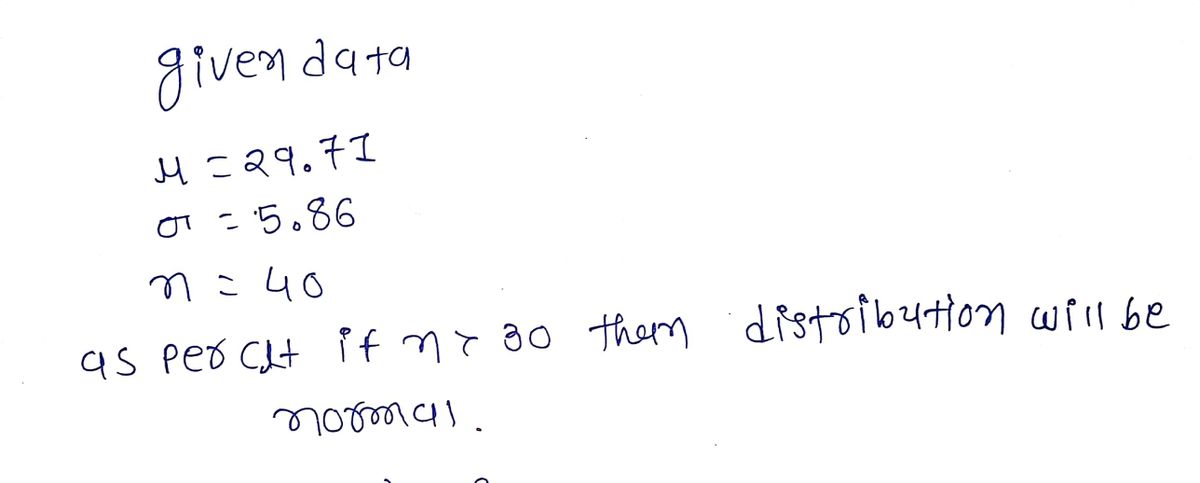 given data
μ = 29.71
σ = 5.86
n = 40
as per clt if n > 30 then distribution will be
normal.